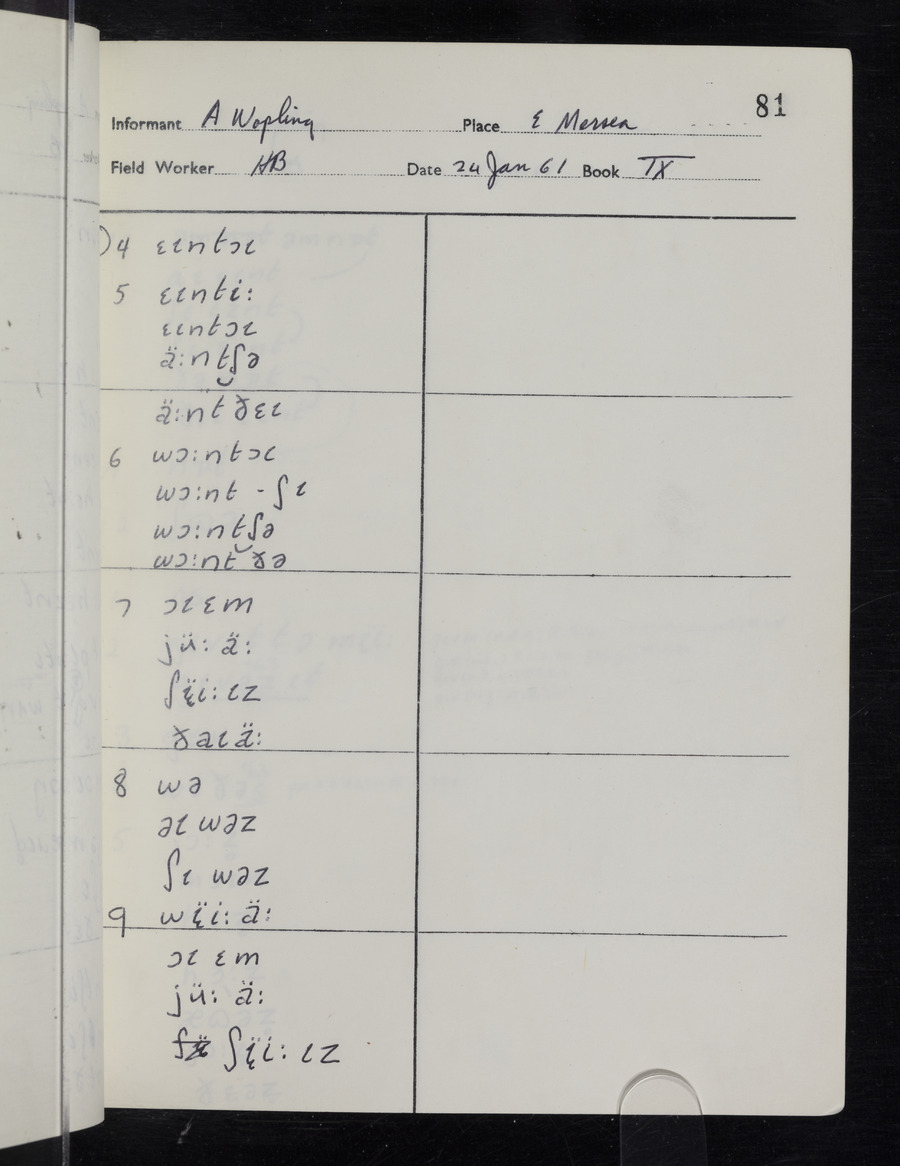 81
Informant A Wopling Place E Mersea
Field Worker HB Date 24 Jan 61 Book IX
4 ɛɩntɔɩ
5 ɛɩnti:
ɛɩntɔɩ
ä:nt̮ʃə
ä:nt ðɛɩ
6 wɔ:ntɔɩ
wɔ:nt - ʃɩ
wɔ:nt̮ʃə
wɔ:nt ðə
7 ɔɩ ɛm
jü: ä:
ʃɩ̈i: ɩz
ðaɩ ä:
8 wə
əɩ wəz
ʃɩ wəz
9 wɩ̈i: ä:
ɔɩ ɛm
jü: ä:
ʃɩ̈i: ɩz